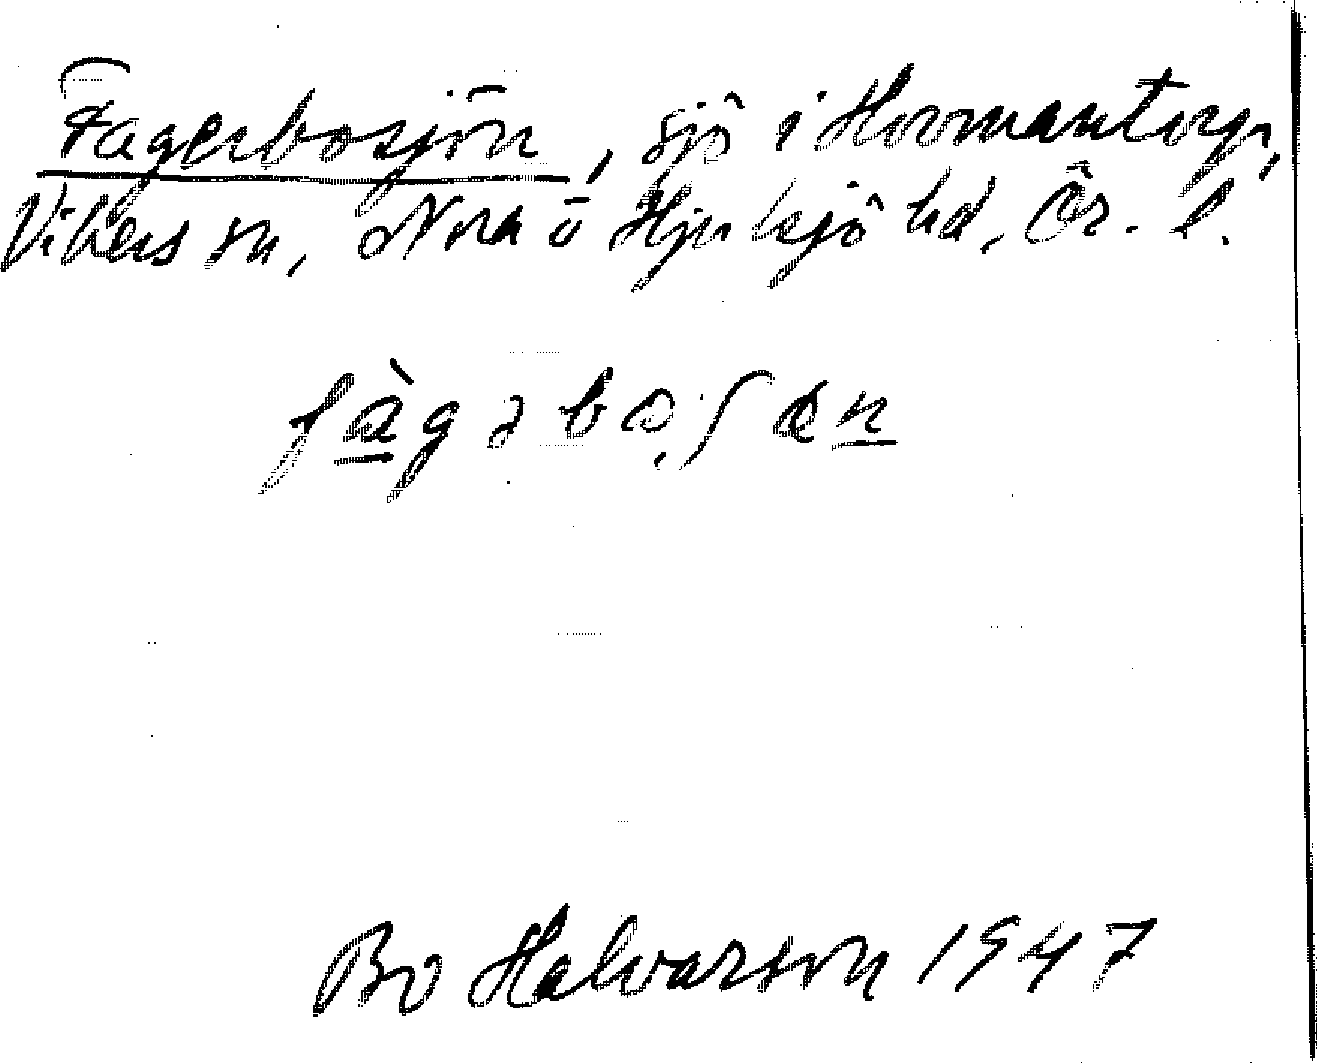 Fagerbosjön, sjö i Hovmantorp,
Vikers sn, Nora ö Hjulsjö hd, Ör. l.
fàgəbo̜ʃøn
Bo Halvarson 1947